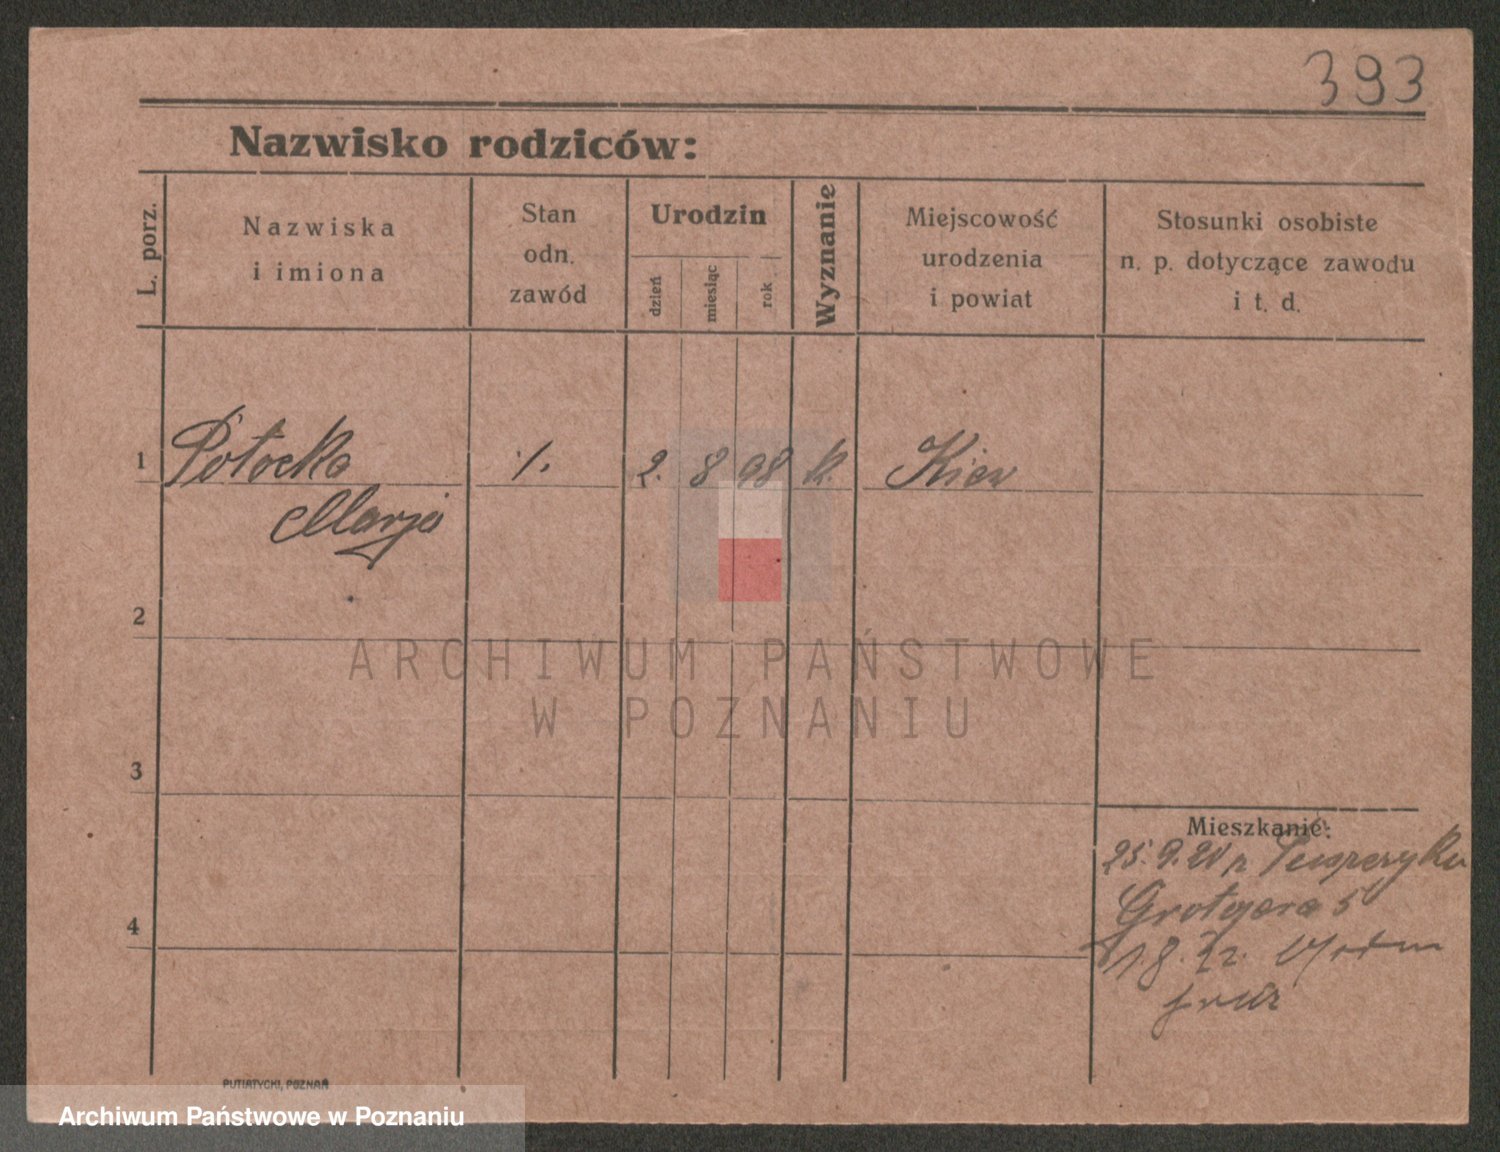 393
Nazwisko rodziców:
L. porz.
Nazwiska
i imiona
Stan
odn.
zawód
Urodzin
dzień
miesiąc
rok
Wyznanie
Miejscowość
urodzenia
i powiat
Stosunki osobiste
n. p. dotyczące zawodu
i t. d.
1 Potocka /. 2. 8 98 k. Kiew
Marja
2
ARCHIWUM PAŃSTWOWE
W POZNANIU
3
Mieszkanie:
25. 9. 20 p
Grotgera 5
4
18.
PUTIATYCKI, POZNAŃ
Archiwum Państwowe w Poznaniu